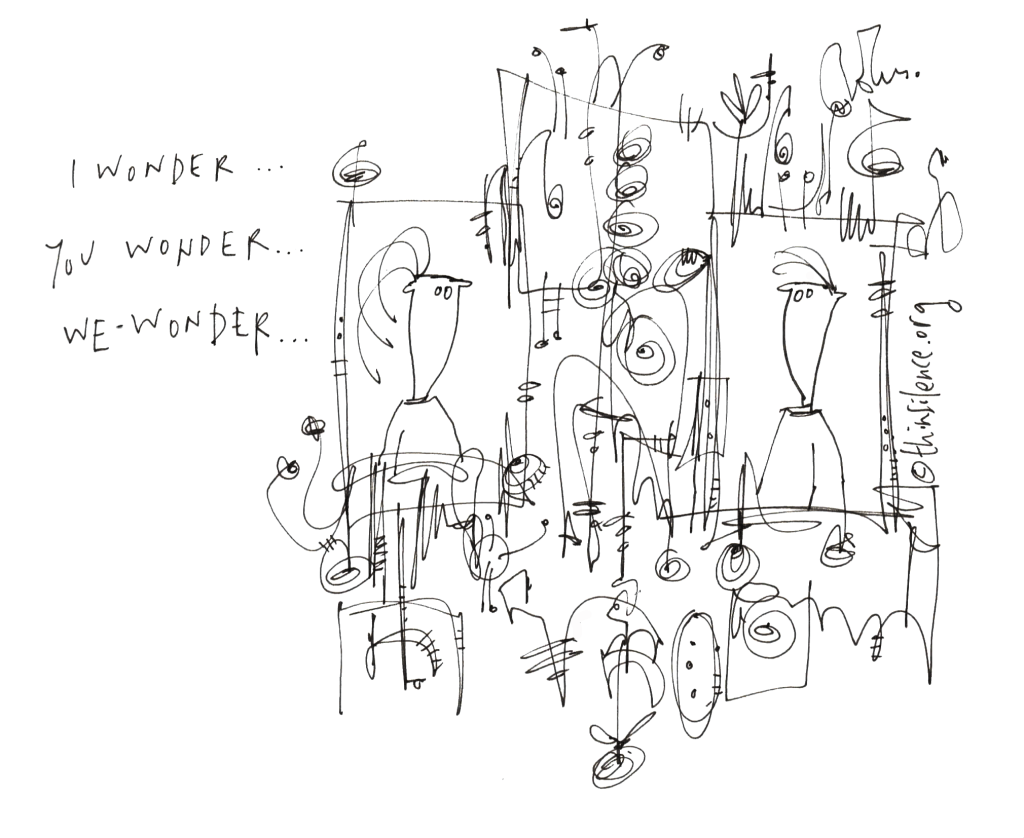 I WONDER ...
YOU WONDER...
WE-WONDER...
©thinsilence.org